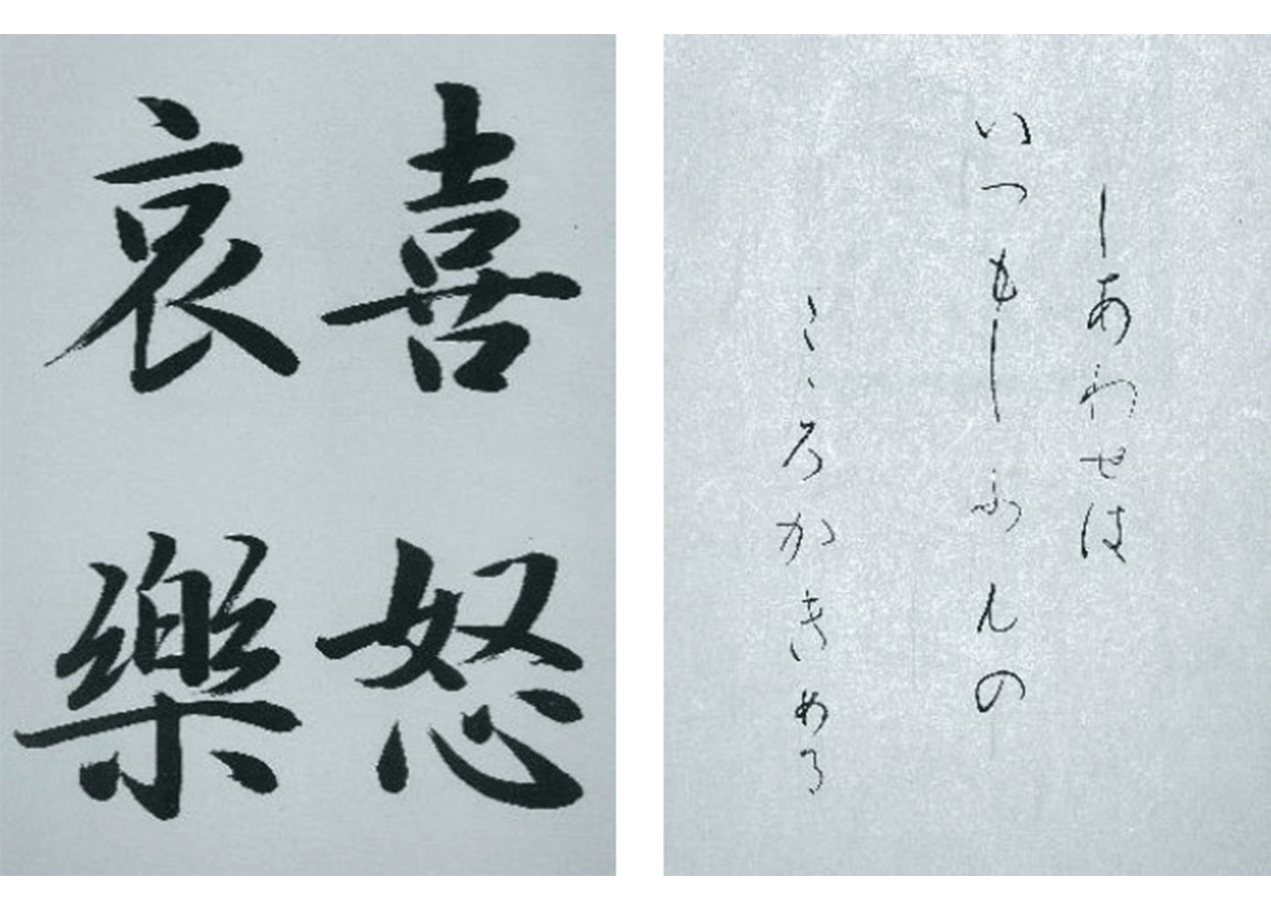 喜怒
哀樂
しあわせは
いつもしふんの
こゝろかきめる